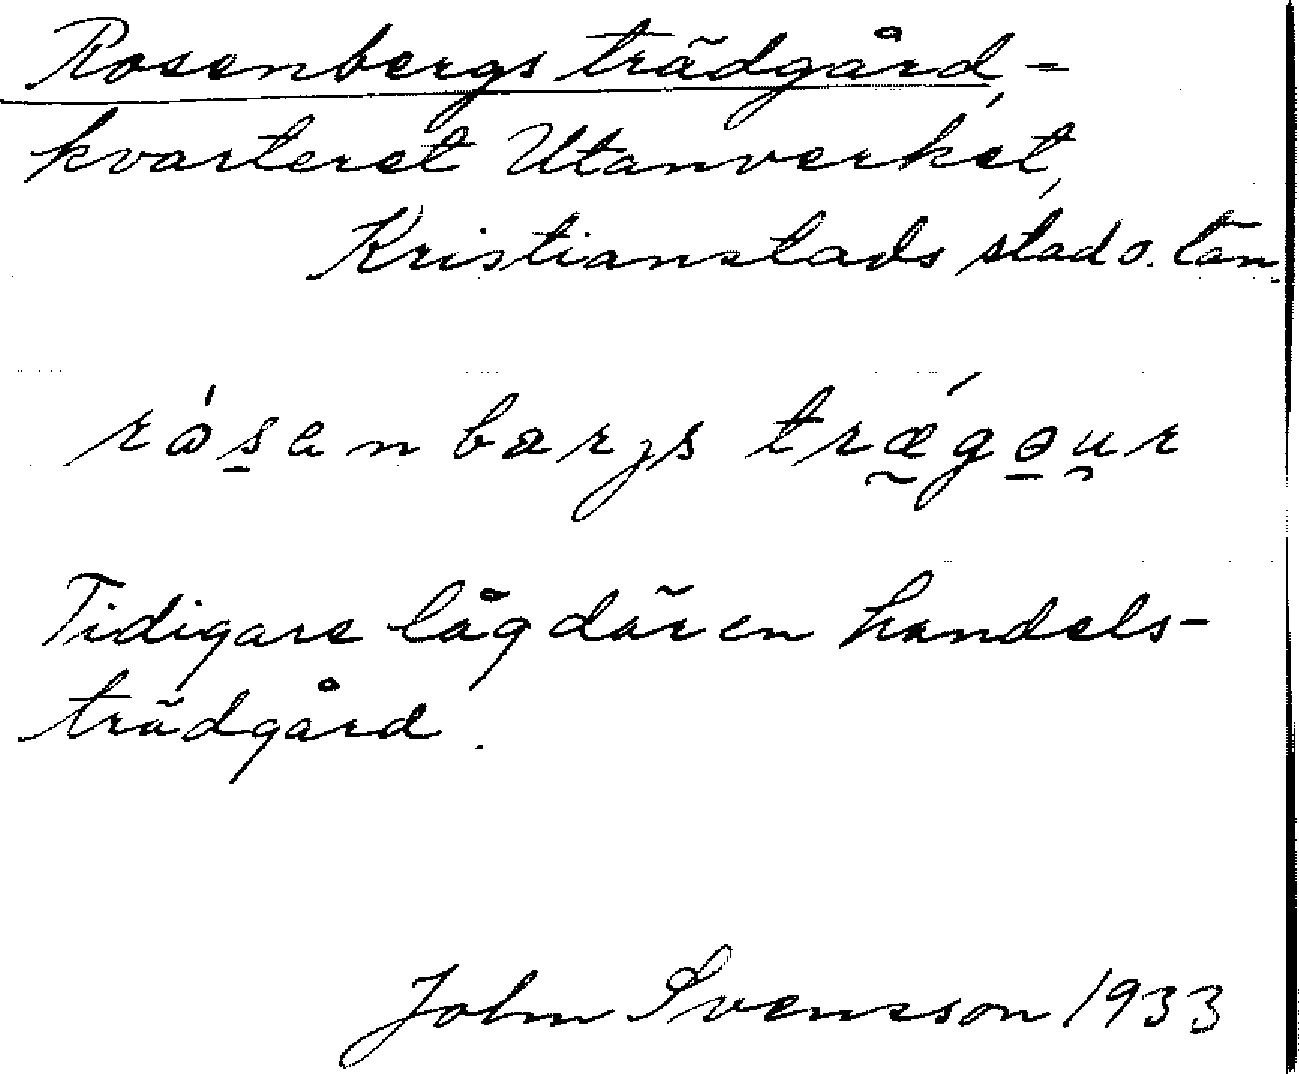 Rosenbergs trädgård =
kvarteret Utanverket,
Kristianstads stad o. län.
rósenbærjs trǽgour
Tidigare låg där en handels-
trädgård.
John Svensson 1933